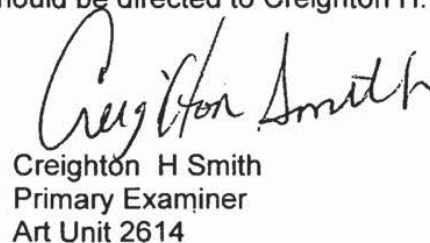 should be directed to Creighton H.
Creighton Smith
Creighton H Smith
Primary Examiner
Art Unit 2614